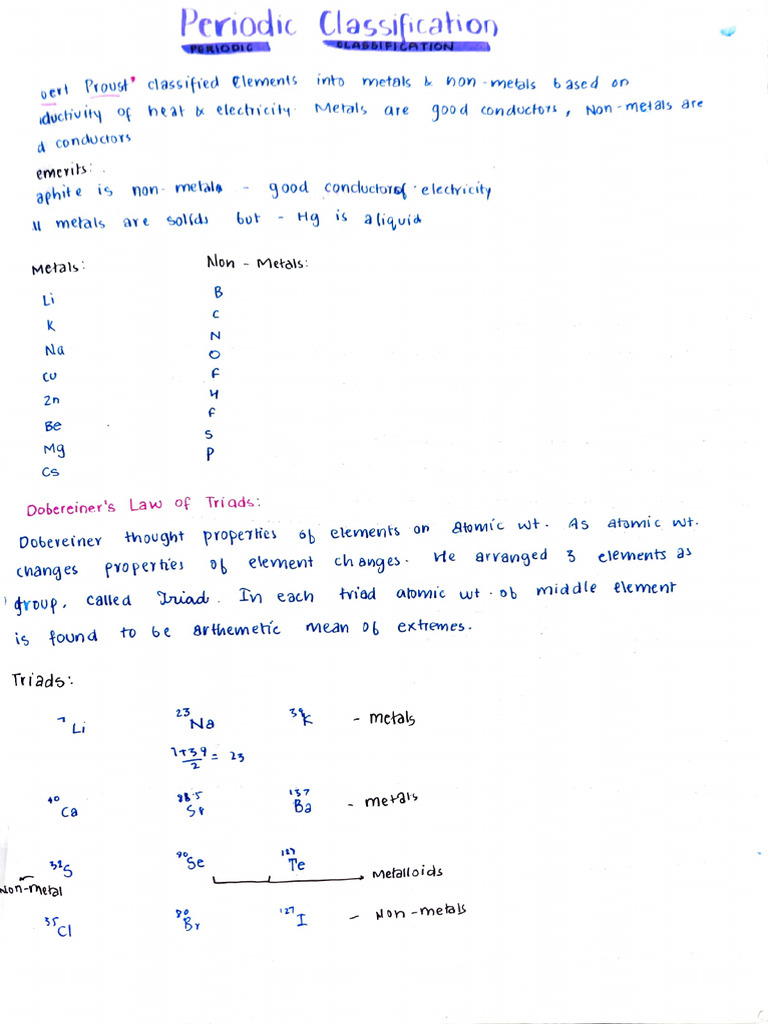 Periodic Classification
PERIODIC CLASSIFICATION
oert Proust" classified Elements into metals & non-metals based on
ductivity of heat & electricity. Metals are good conductors, Non-metals are
d conductors
emerits:
aphite is non-metals - good conductor of electricity
ll metals are solids but - Hg is a liquid
Metals: Non - Metals:
Li B
K C
Na N
Cu O
Zn F
Be H
Mg F
Cs S
P
Dobereiner's Law of Triads:
Dobereiner thought properties of elements on atomic wt. As atomic wt.
changes properties of element changes. He arranged 3 elements as
group, called Triad. In each triad atomic wt. of middle element
is found to be arthemetic mean of extremes.
Triads:
7 Li 23 Na 39 K - metals
7+39/2 = 23
40 Ca 88.5 Sr 137 Ba - metals
32 S Se 127 Te Metalloids
Non-metal
35 Cl 80 Br 127 I - Non-metals